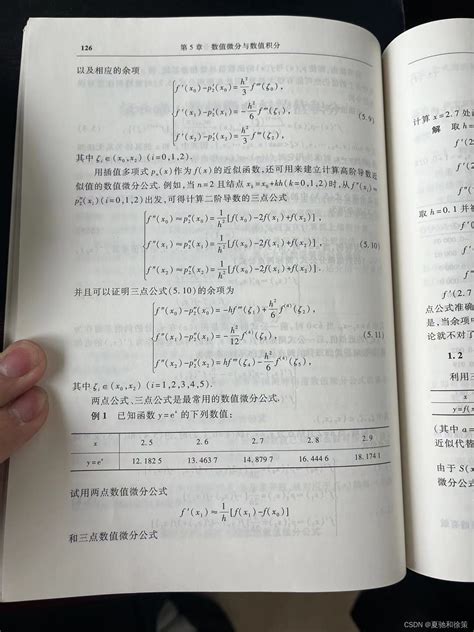 126 第5章 数值微分与数值积分
以及相应的余项
f'(x₀)-p₂'(x₀)=h²/3 f'''(ζ₀),
f'(x₁)-p₂'(x₁)=-h²/6 f'''(ζ₁),
f'(x₂)-p₂'(x₂)=h²/3 f'''(ζ₂),
(5.9)
其中 ζᵢ∈(x₀,x₂) (i=0,1,2).
用插值多项式 pₙ(x)作为 f(x)的近似函数,还可用来建立计算高阶导数近
似值的数值微分公式.例如,当 n=2 且结点 xₖ=x₀+kh(k=0,1,2)时,从 f''(xᵢ)≈
p₂''(xᵢ)(i=0,1,2)出发,可得计算二阶导数的三点公式
f''(x₀)≈p₂''(x₀)=1/h²[f(x₀)-2f(x₁)+f(x₂)],
f''(x₁)≈p₂''(x₁)=1/h²[f(x₀)-2f(x₁)+f(x₂)],
f''(x₂)≈p₂''(x₂)=1/h²[f(x₀)-2f(x₁)+f(x₂)].
(5.10)
并且可以证明三点公式(5.10)的余项为
f''(x₀)-p₂''(x₀)=-hf'''(ζ₁)+h²/6 f⁽⁴⁾(ζ₂),
f''(x₁)-p₂''(x₁)=-h²/12 f⁽⁴⁾(ζ₃),
f''(x₂)-p₂''(x₂)=hf'''(ζ₄)-h²/6 f⁽⁴⁾(ζ₅),
(5.11)
其中 ζᵢ∈(x₀,x₂) (i=1,2,3,4,5).
两点公式、三点公式是最常用的数值微分公式.
例1 已知函数 y=eˣ 的下列数值:
x 2.5 2.6 2.7 2.8 2.9
y=eˣ 12.182 5 13.463 7 14.879 7 16.444 6 18.174 1
试用两点数值微分公式
f'(x₁)≈1/h[f(x₁)-f(x₀)]
和三点数值微分公式
计算 x=2.7 处
解 取 h=
取 h=0.1 并
f'(2.7
点公式准确
是,当余项中
论就不对了
1.2
利用
x
y=f(
(其中 a=
近似代替
由于 S(
微分公式
CSDN @夏驰和徐策